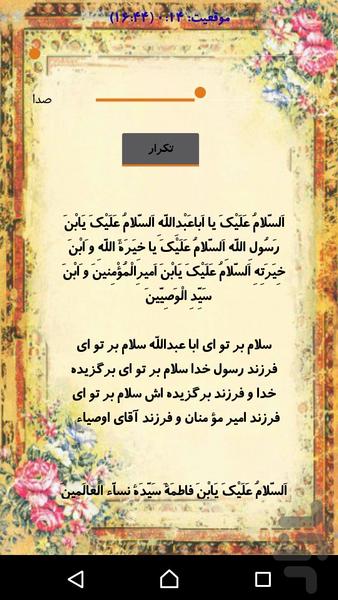 موقعیت: ۰:۱۴ (۱۶:۴۴)
صدا
تکرار
اَلسّلامُ عَلَیْکَ یا اَباعَبْدِاللّه اَلسّلامُ عَلَیْکَ یَابْنَ
رَسُولِ اللّه اَلسّلامُ عَلَیْکَ یا خِیَرَةَ اللّه و َابْنَ
خِیَرَتِهِ اَلسّلامُ عَلَیْکَ یَابْنَ اَمیرِالْمُؤْمِنینَ و َابْنَ
سَیِّدِ الْوَصِیّینَ
سلام بر تو ای ابا عبداللّه سلام بر تو ای
فرزند رسول خدا سلام بر تو ای برگزیده
خدا و فرزند برگزیده اش سلام بر تو ای
فرزند امیر مؤ منان و فرزند آقای اوصیاء
اَلسّلامُ عَلَیْکَ یَابْنَ فاطِمَةَ سَیِّدَةِ نِساَّءِ الْعالَمینَ